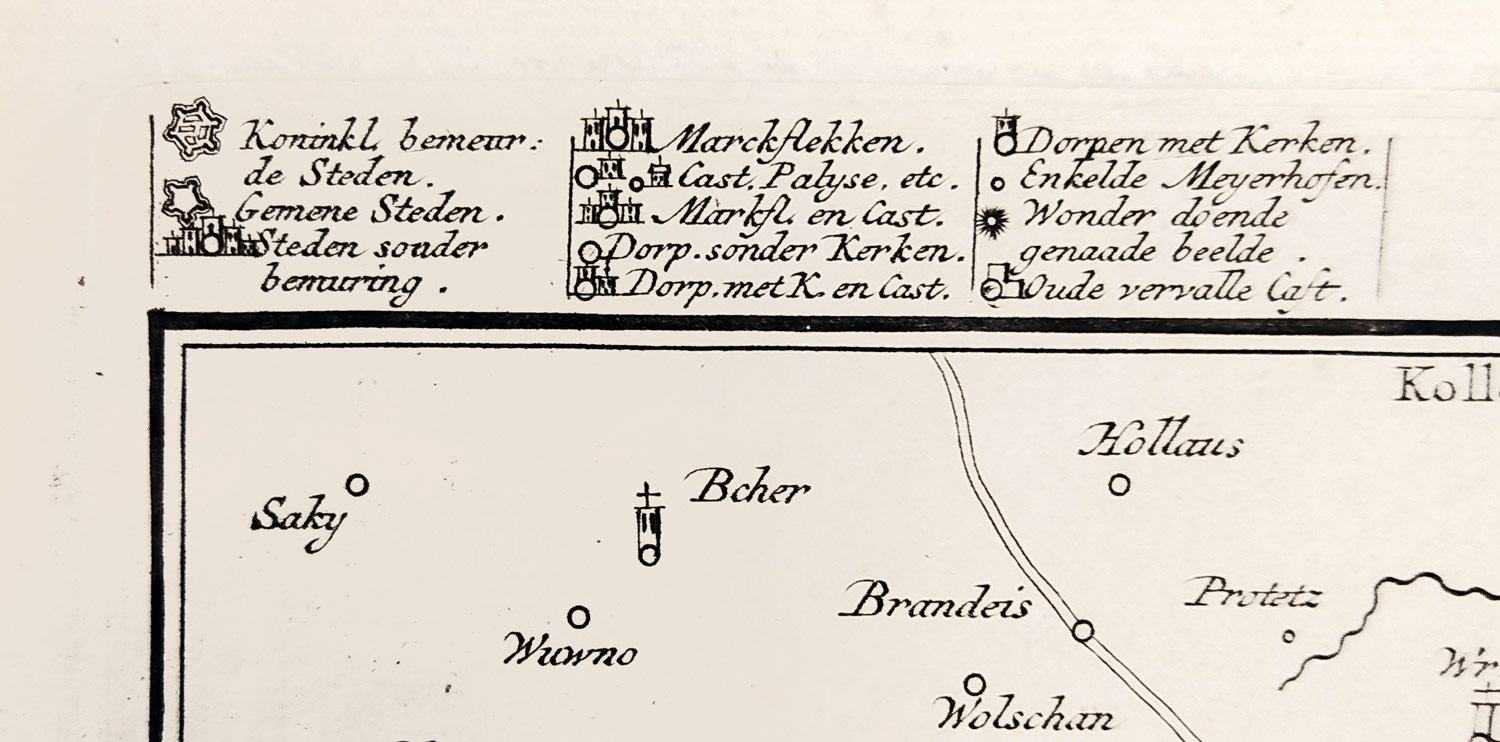 Koninkl. bemeur:
de Steden.
Gemene Steden.
Steden sonder
bemuring.
Marckflekken.
Cast. Palyse, etc.
Markfl. en Cast.
Dorp. sonder Kerken.
Dorp. met K. en Cast.
Dorpen met Kerken.
Enkelde Meyerhofen.
Wonder doende
genaade beelde.
Oude vervalle Cast.
Hollaus
Saky
Bcher
Brandeis
Protetz
Wuwno
Wolschan